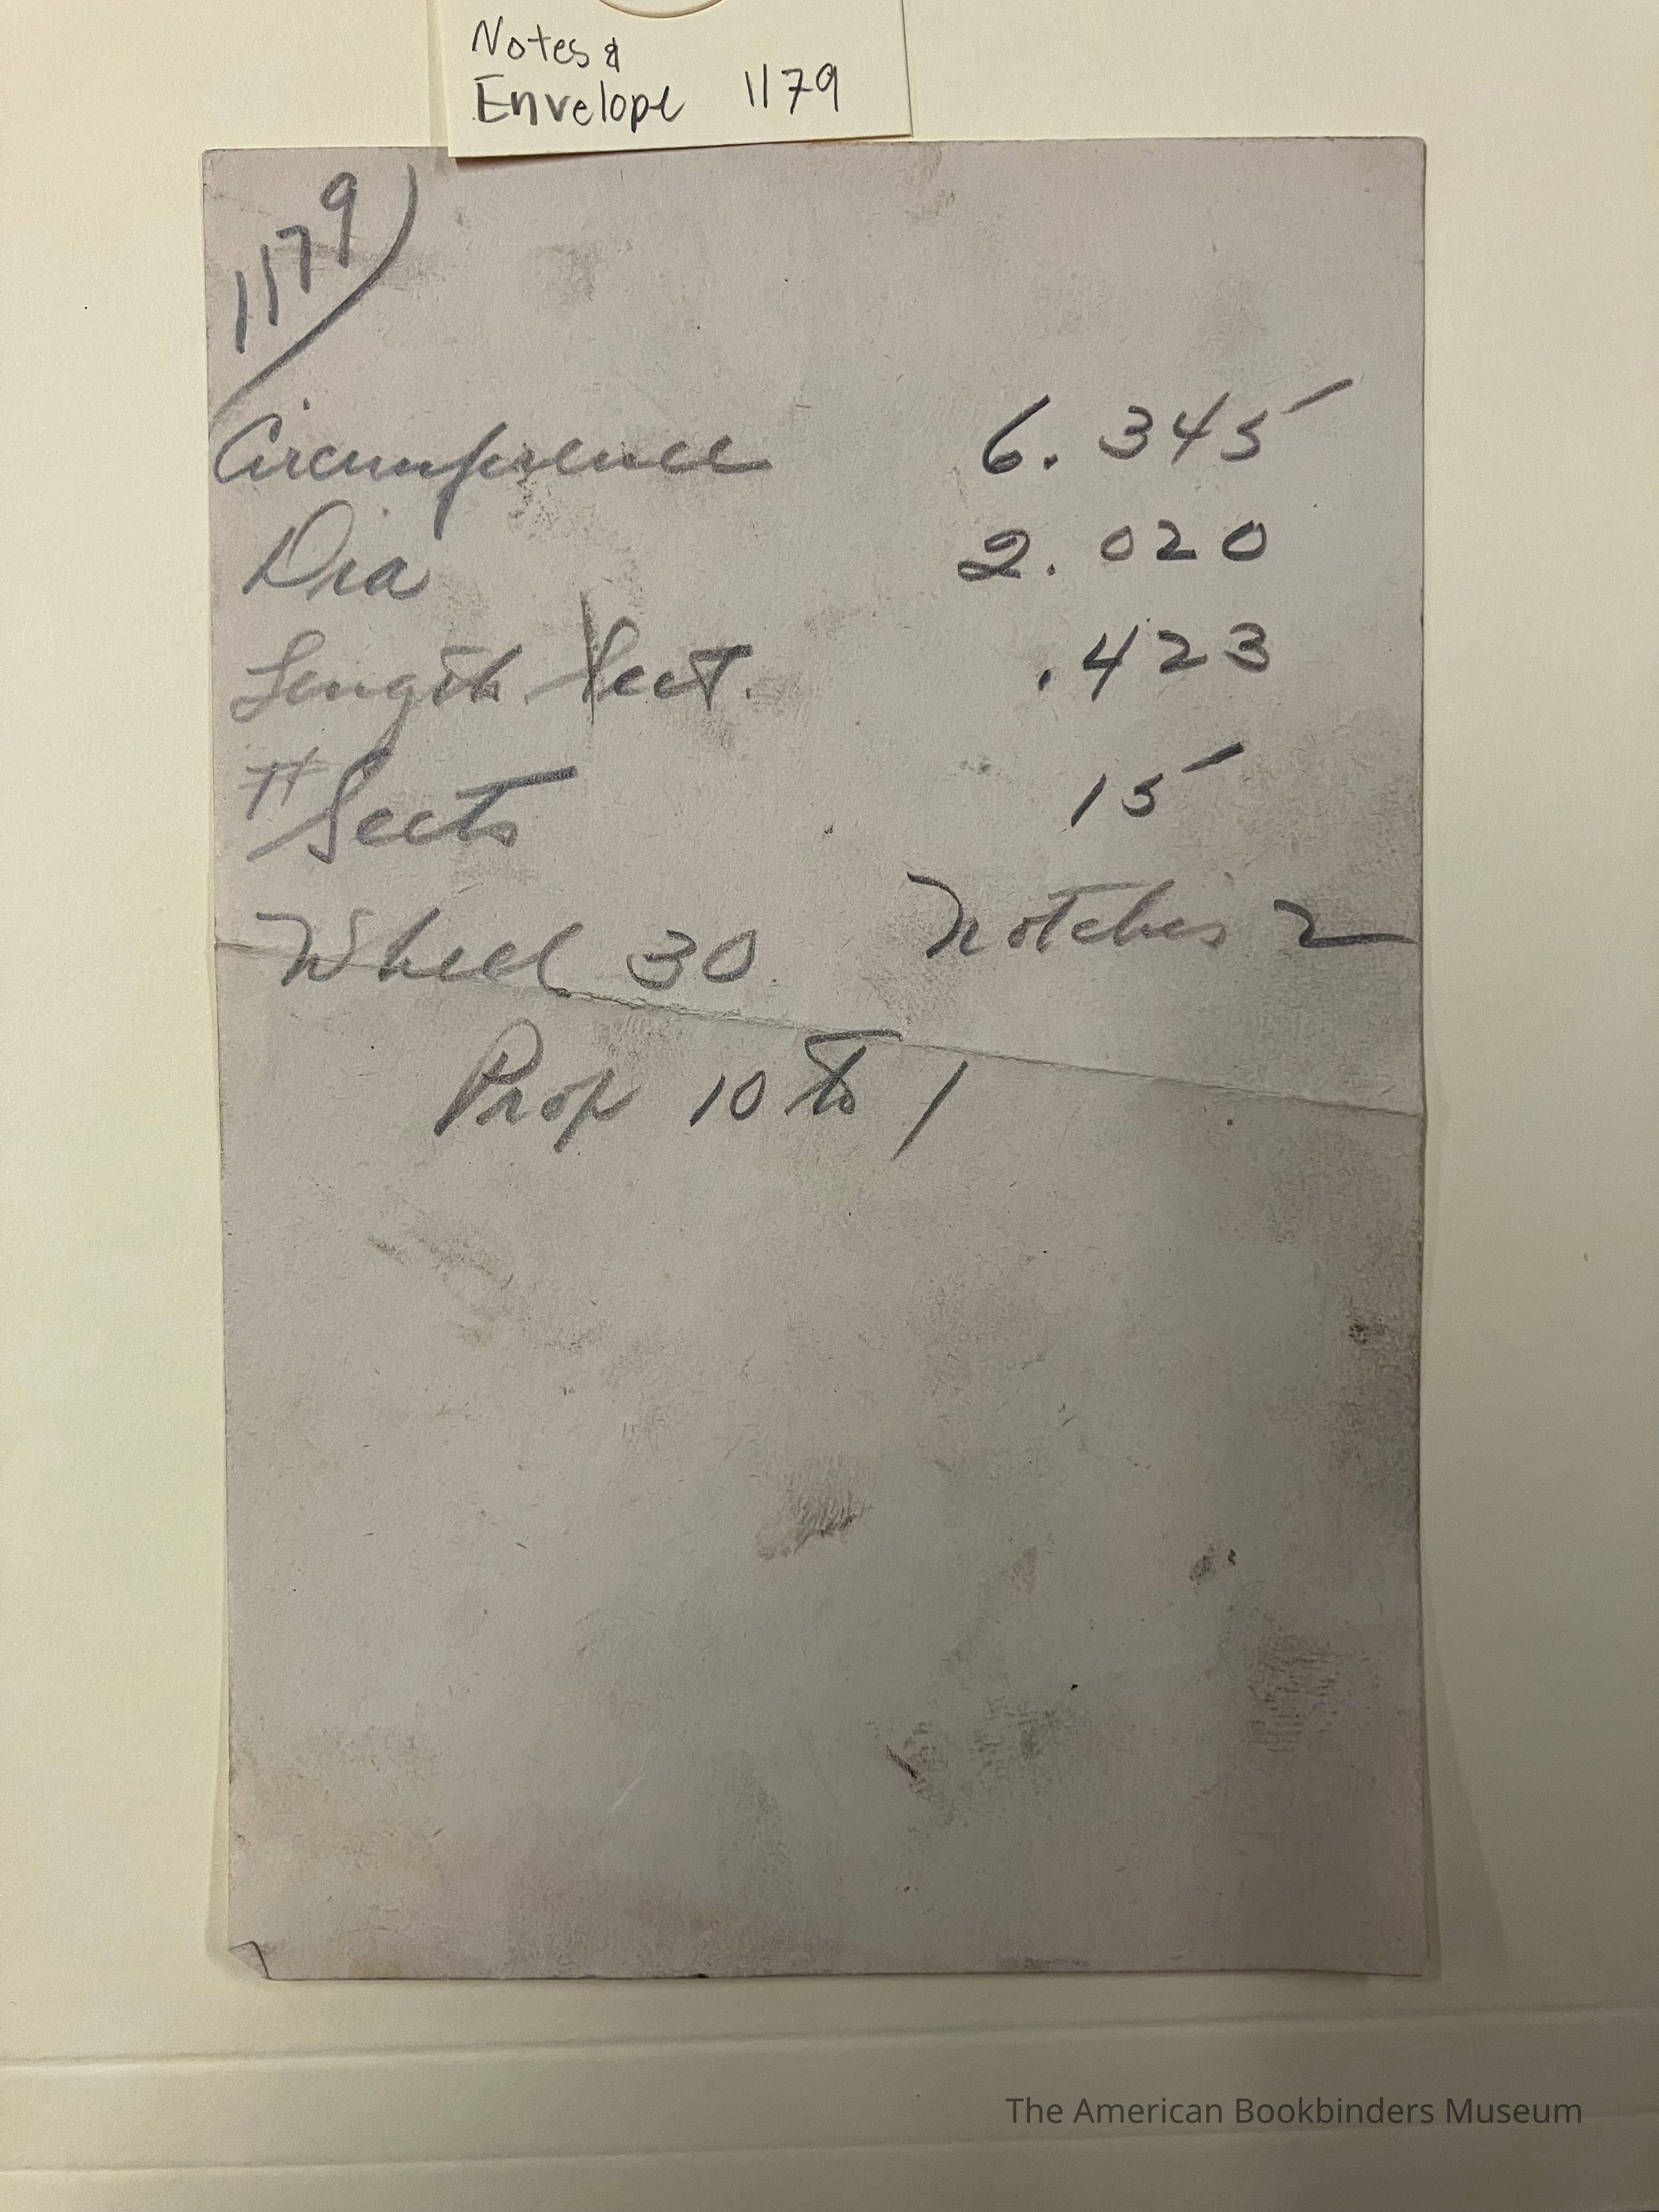 Notes &
Envelope 1179
1179
Circumference 6.345
Dia 2.020
Length Sect. .423
# Sects 15
Wheel 30 Notches 2
Prop 10 to 1
The American Bookbinders Museum